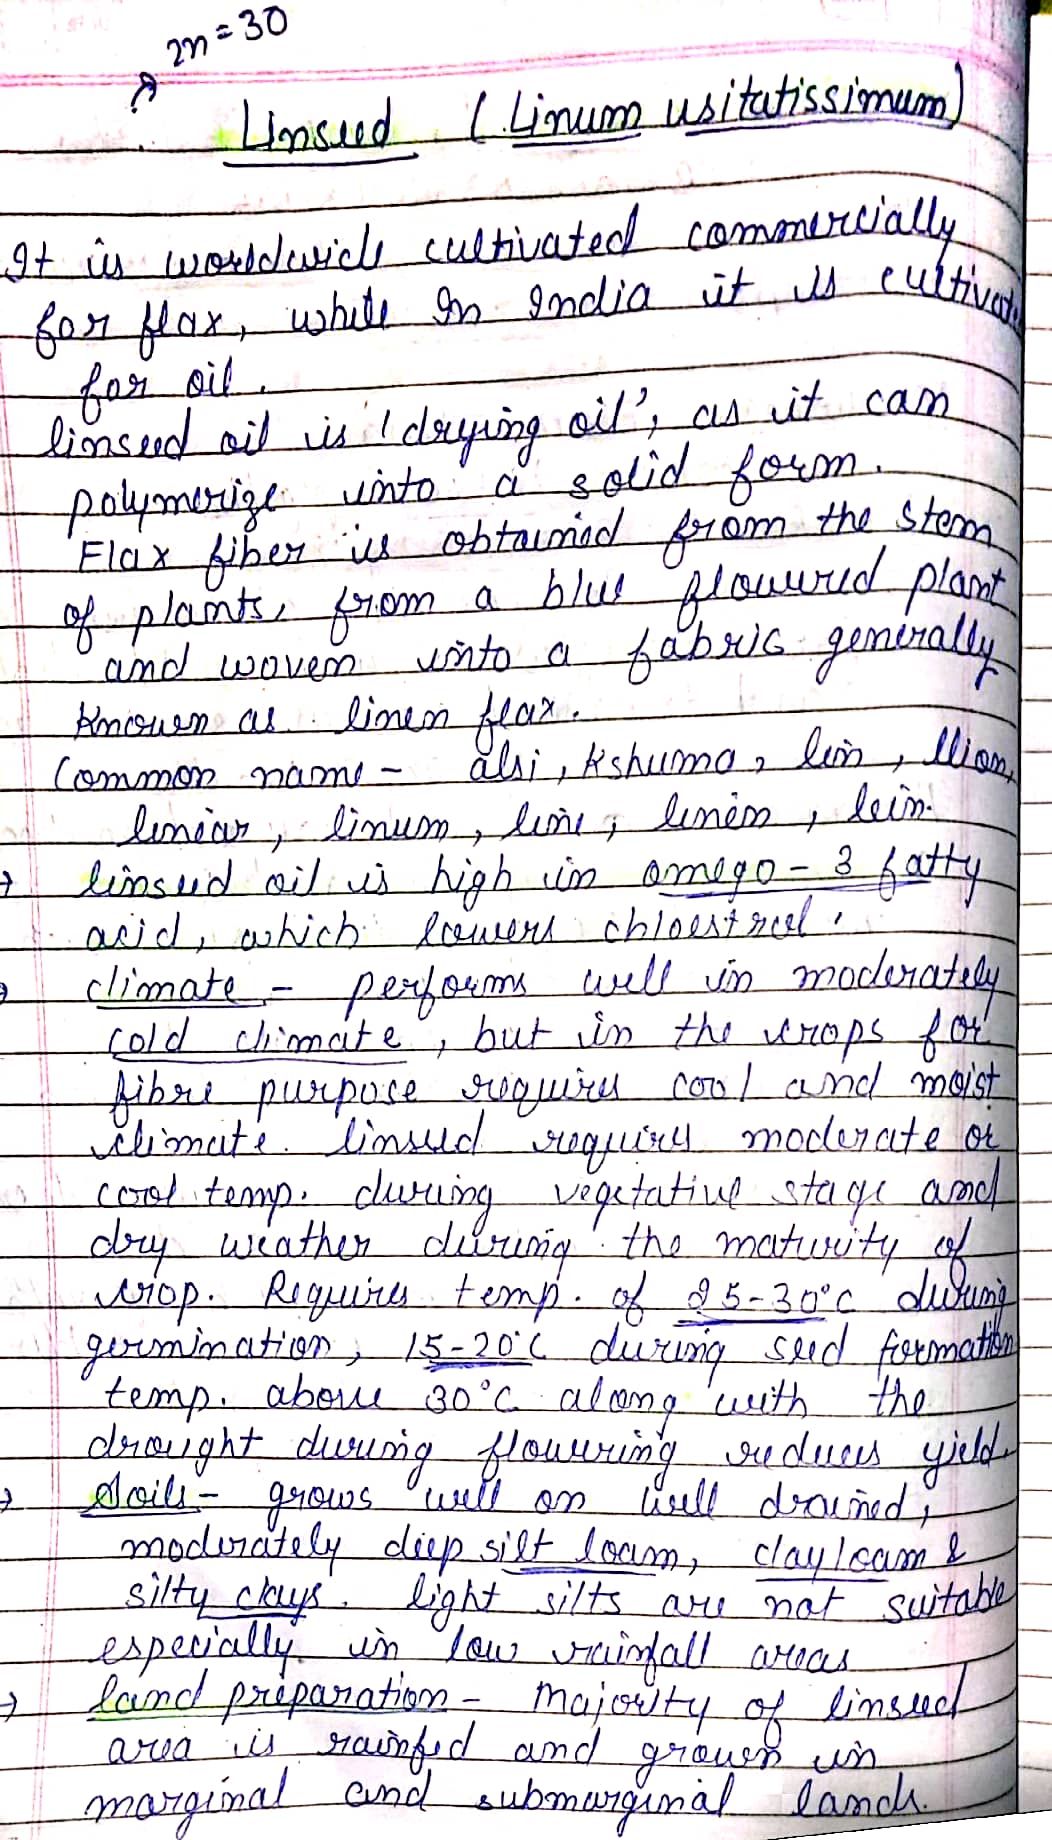 2n = 30
Linseed (Linum usitatissimum)
It is worldwide cultivated commercially
for flax, while In India it is cultivat
for oil.
linseed oil is 'drying oil', as it can
polymerize into a solid form.
Flax fiber is obtained from the stem
of plants, from a blue flowered plant
and woven into a fabric generally
known as linen flax.
Common name - alsi, Kshuma, lin, llion,
liniar, linum, line, linen, lein.
→ linseed oil is high in omego-3 fatty
acid, which lowers chloestrol.
→ climate - performs well in moderately
cold climate, but in the crops for
fibre purpose requires cool and moist
climate. linseed requires moderate or
cool temp. during vegetative stage and
dry weather during the maturity of
crop. Requires temp. of 25-30°C during
germination, 15-20°C during seed formation
temp. above 30°C along with the
drought during flowering reduces yield.
→ Soils - grows well on well drained,
moderately deep silt loam, clay loam &
silty clays. light silts are not suitable
especially in low rainfall areas
→ land preparation - Majority of linseed
area is rainfed and grown in
marginal and submarginal lands.